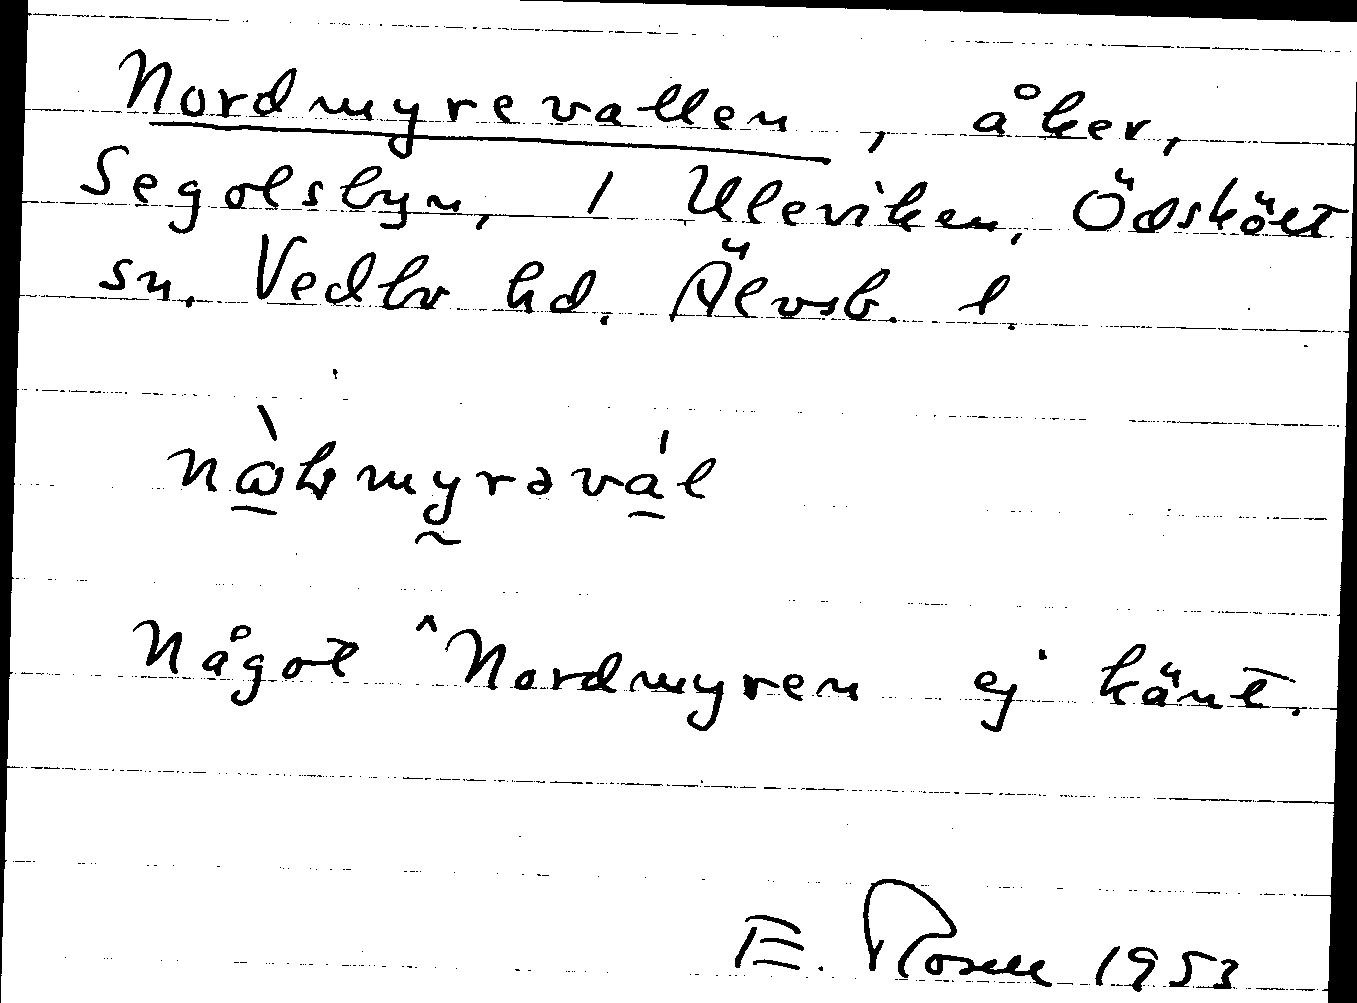 Nordmyrevallen, åker,
Segolsbyn, 1 Uleviken, Ödskölt
sn. Vedbo hd. Älvsb. l.
Något ^Nordmyren ej känt.
E. Rosell 1953